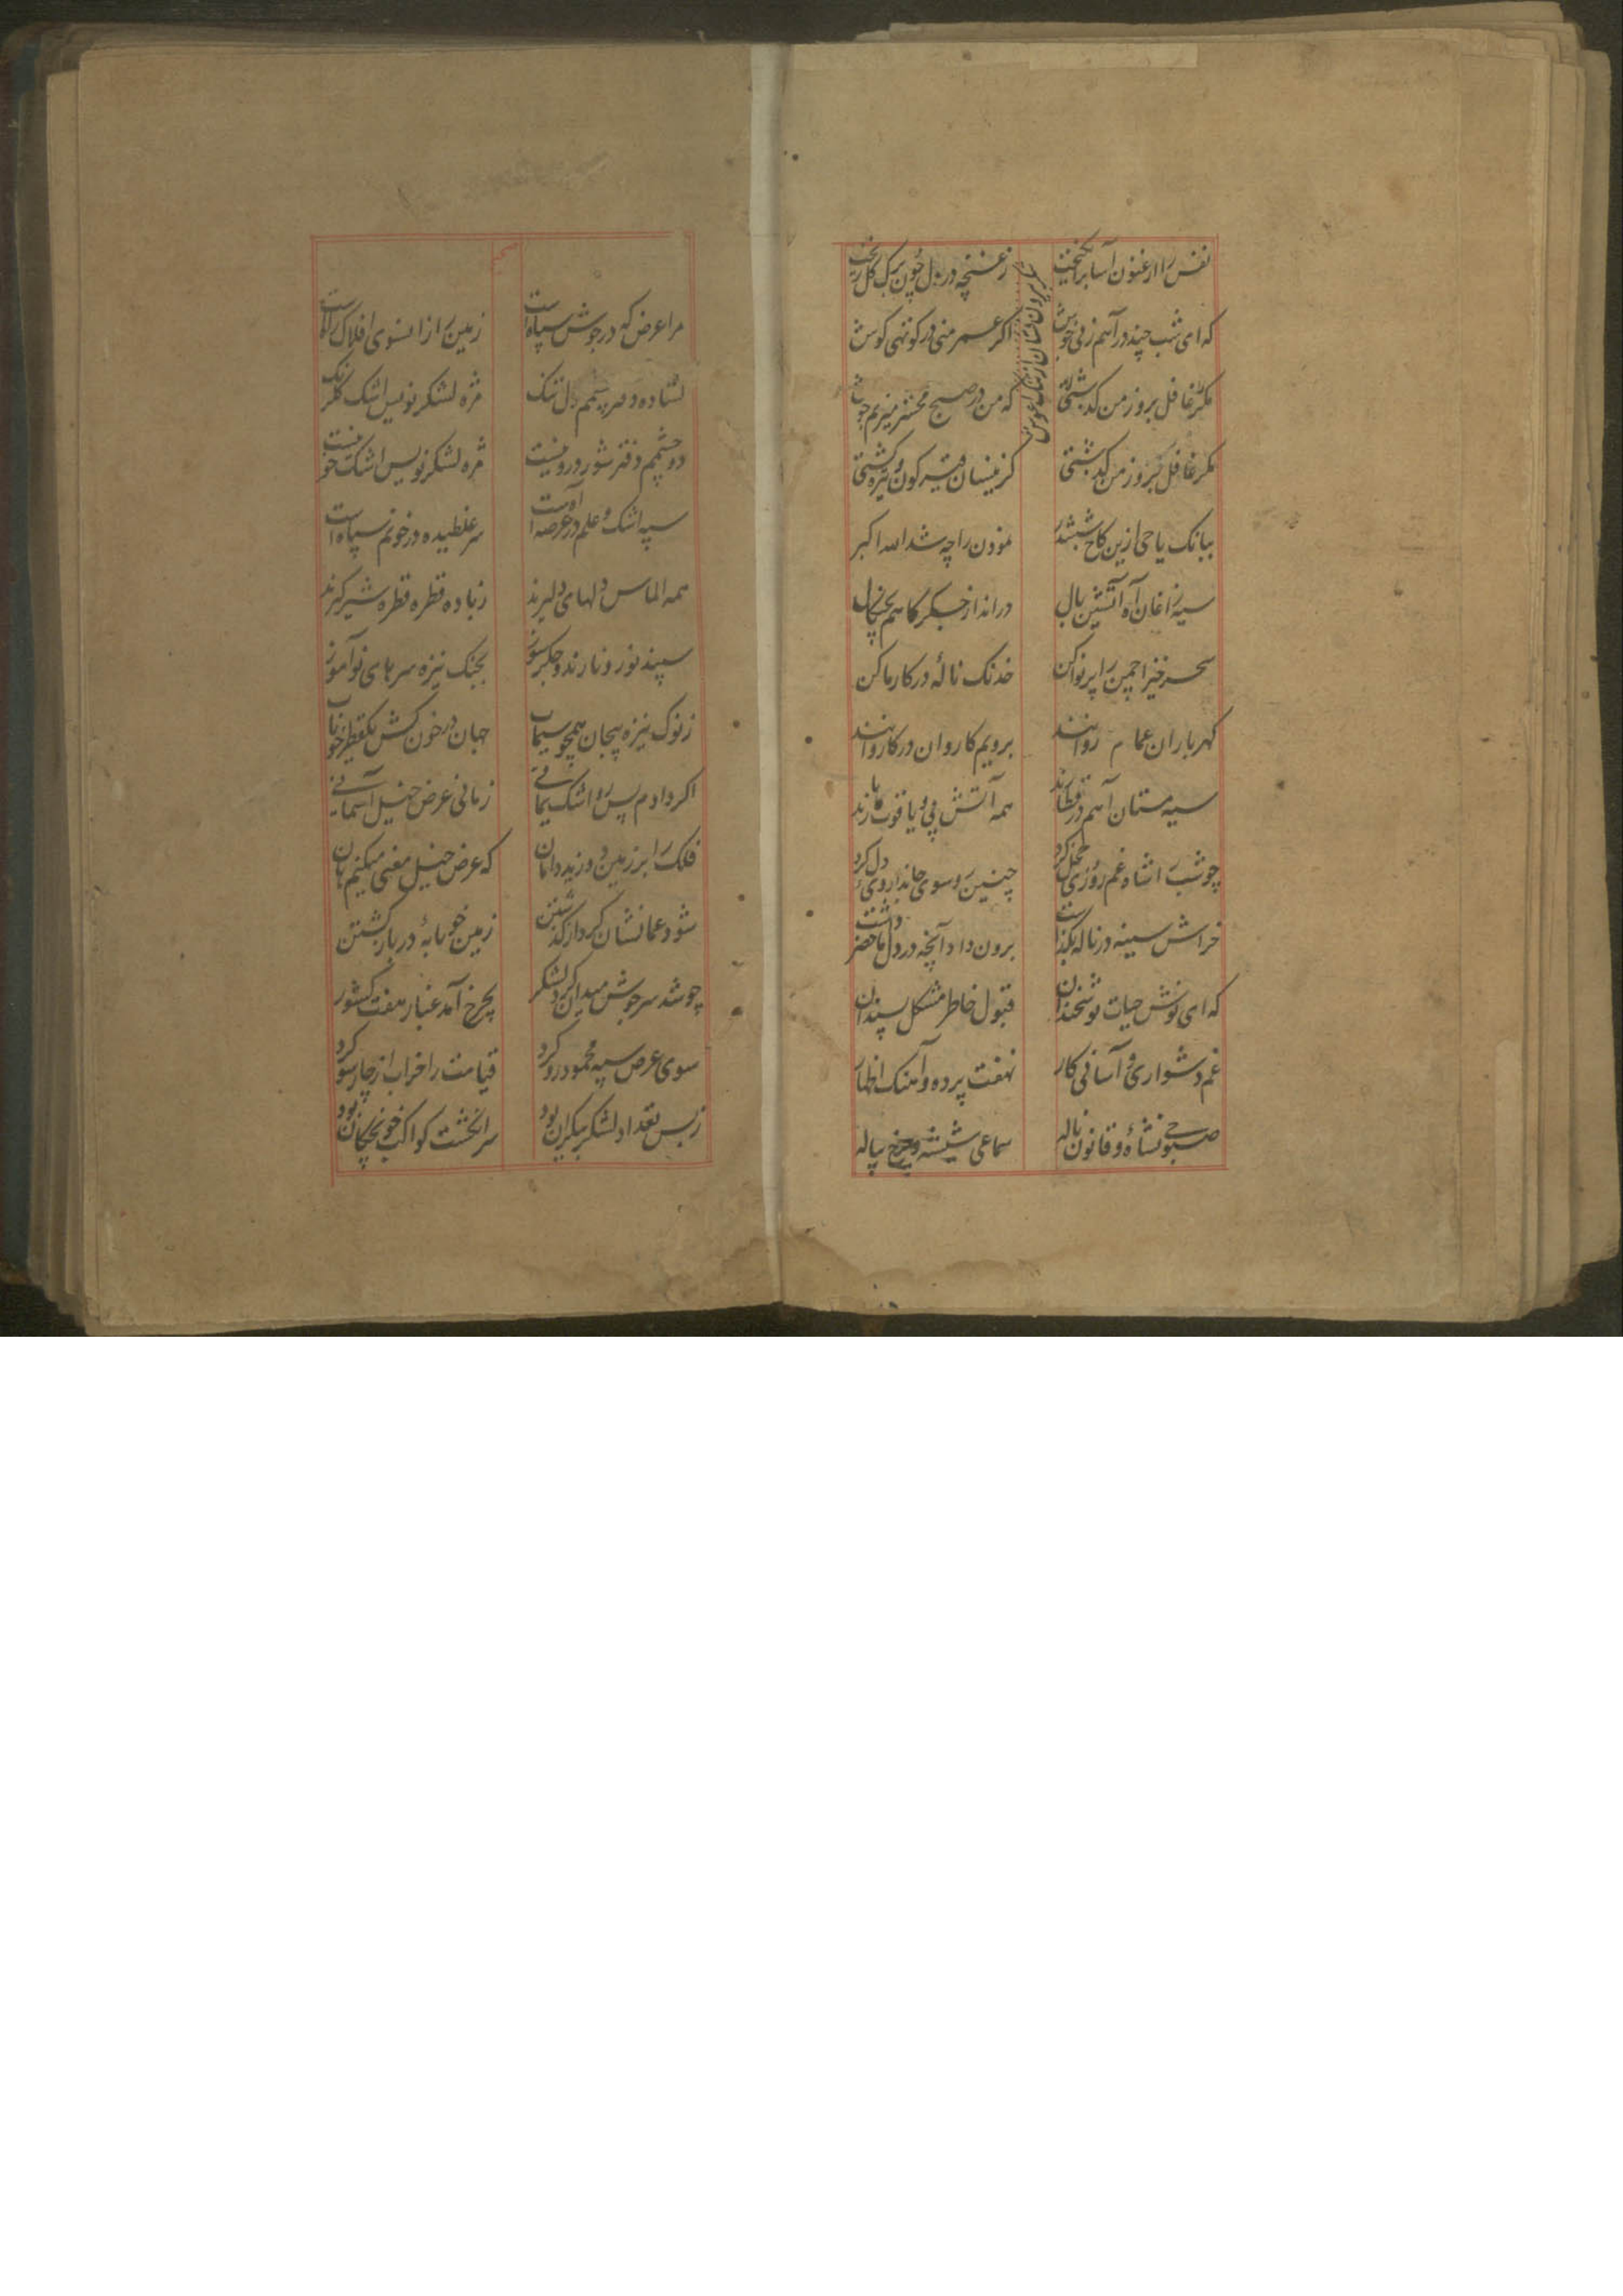 نفس را ارغنون آسا برانگیخت زغنچه در بدل چون برک کل ریخت
که ای شب چند در آهم زنی جوش اکر عمر منی در کوتهی کوش
بیرون نشان از تنک اغوش
مکر غافل بروز من کذشتی که من در صبح محشر میزنم
مکر غافل بروز من کذشتی کزینسان قیرکون و تیره کشتی
ببانک یا حی ازین کاخ ششدر موذن را چه شد الله اکبر
سیه زاغان آه آتشین بال درانداز جکر کاهم بچنکال
سحرخیز اچمن را پرنوا کن خدنک نالهٔ در کار ما کن
کهرباران عمام روانند برویم کاروان در کاروانند
سیه مستان آهم در قطارند همه آتش پی و یاقوت بارند
چو شب را شاه غم روزی محمل کرد چنین رو سوی جاندار وی دل کرد
خراش سینه در ناله بکذاشت برون داد آنچه در دل ماحضر داشت
که ای نوش حیات نوشخندان قبول خاطر مشکل پسندان
غم دشواری و آسانی کار نهفت پرده و آهنک اظهار
صبوحی نشاهٔ و قانون ناله سماعی شیشه و چرخ پیاله
مرا عرض که در جوش سپاه است زمین را از انسوی افلاک راه است
ستاده دل تنک مژه لشکر نویس اشک کلرنک
دو چشمم دفتر شور درونیست مژه لشکر نویس اشک خونیست
سپه اشک و علم در عرصه آهست سر غلطیده در خونم سپاه است
همه الماس دلهای دلیرند زباده قطره قطره شیر کیرند
سپند نور و نارند و جکرسوز بجنک نیزه سرهای نوآموز
زنوک نیزه پیجان همچو سیماب جهان در خون کش یکقطره خوناب
اکر دادم پس رو اشک یمانی زمانی عرض خیل آسمانی
فلک را بر زمین دوزید دامان که عرض خیل مغنی میکنم هان
شود عمانشان کرد از کذشتن زمین خونابهٔ در بار کشتن
چو شد سرجوش میدان کرد لشکر بچرخ آمد غبار هفت کشور
سوی عرض سپه محمود رو کرد قیامت را خراب از چارسو کرد
زبس تعداد لشکر بیکران بود سرانکشت کواکب خونچکان بود